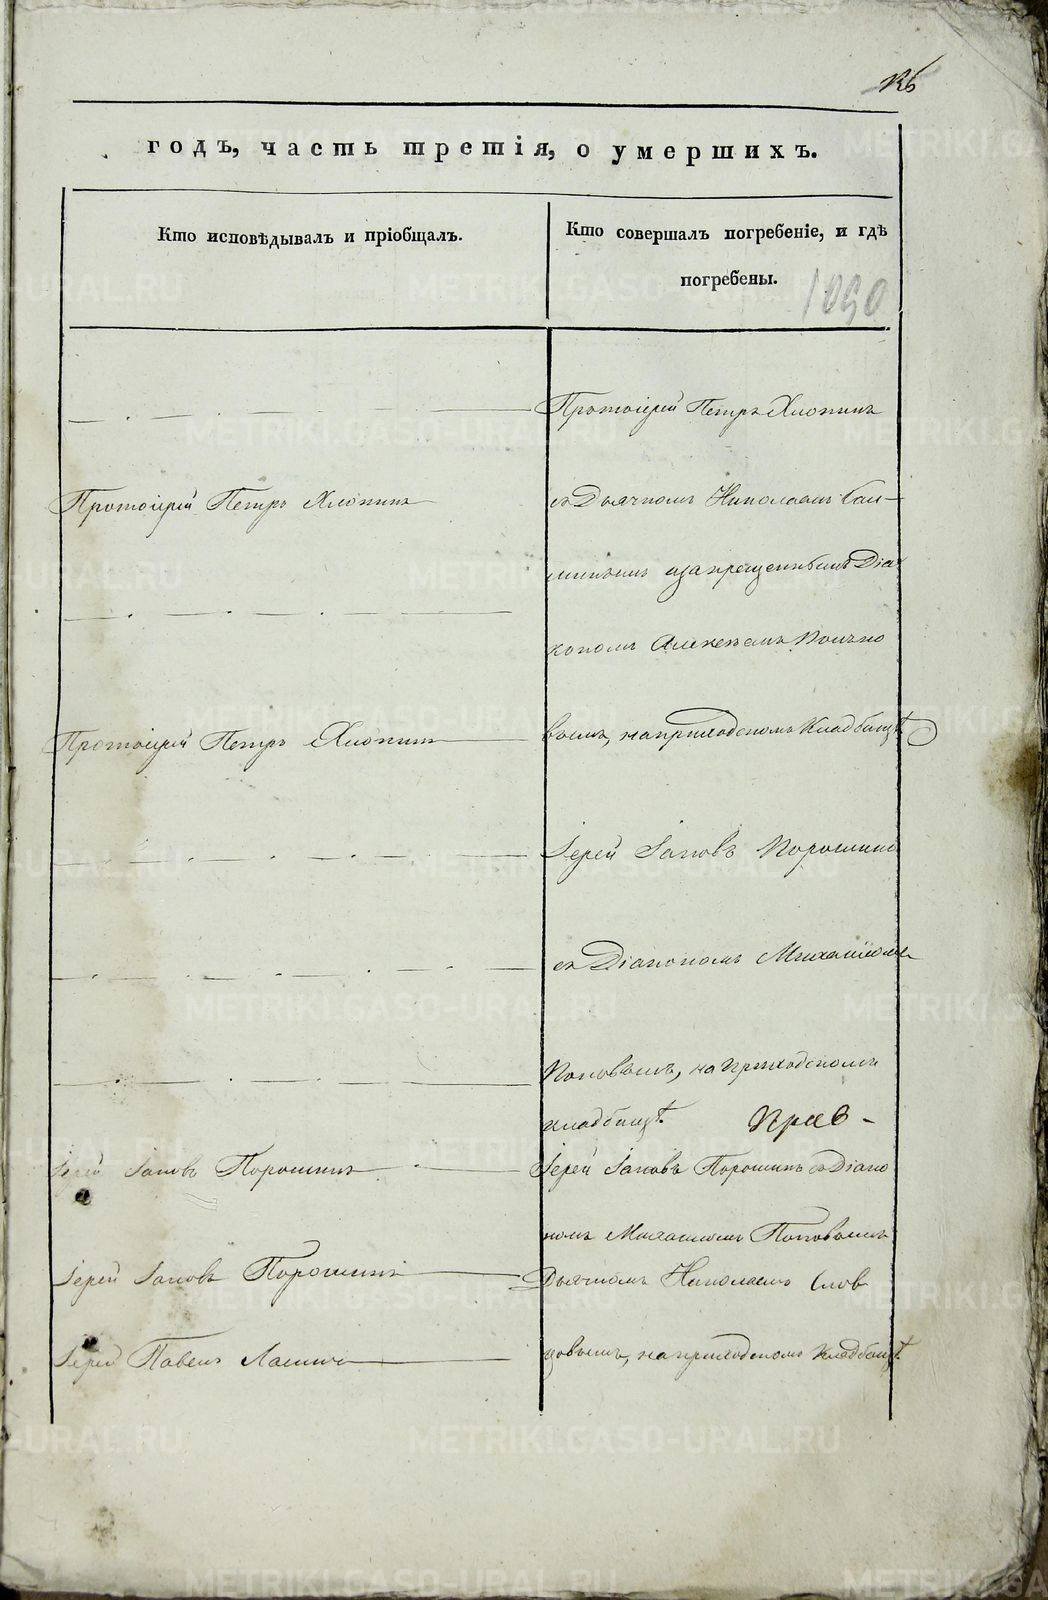 126
годъ, часть третія, о умершихъ.
Кто исповѣдывалъ и пріобщалъ.
Кто совершалъ погребеніе, и гдѣ
погребены.
1090
Протоіерей Петръ Хлопинъ
Протоіерей Петръ Хлопинъ
съ Дьячкомъ Николаемъ
запрещеннымъ Діа
кономъ Алексѣемъ
Протоіерей Петръ Хлопинъ
вымъ, на приходскомъ Кладбищѣ
Іерей Іаковъ Порошинъ
съ Діакономъ Михаиломъ
Поповымъ, на приходскомъ
кладбищѣ.
Іерей Іаковъ Порошинъ
Іерей Іаковъ Порошинъ съ Діако
номъ Михаиломъ Поповымъ
Іерей Іаковъ Порошинъ
Дьячкомъ Николаемъ Слов
цовымъ, на приходскомъ Кладбищѣ
Іерей Павелъ
METRIKI.GASO-URAL.RU